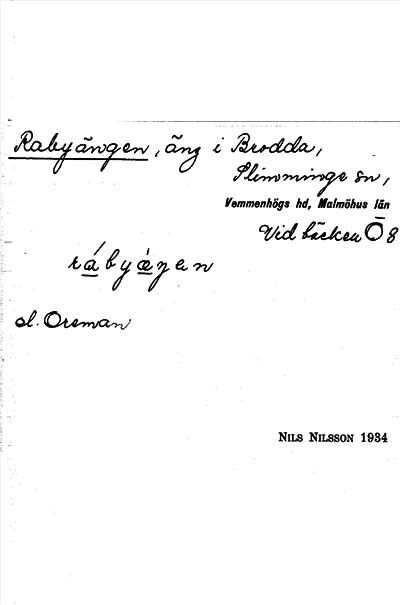 Rabyängen, äng i Brodda,
Slimminge sn,
Vemmenhögs hd, Malmöhus län
Vid bäcken Ö 8
rábyæ̀ŋen
el. Oreman
NILS NILSSON 1934